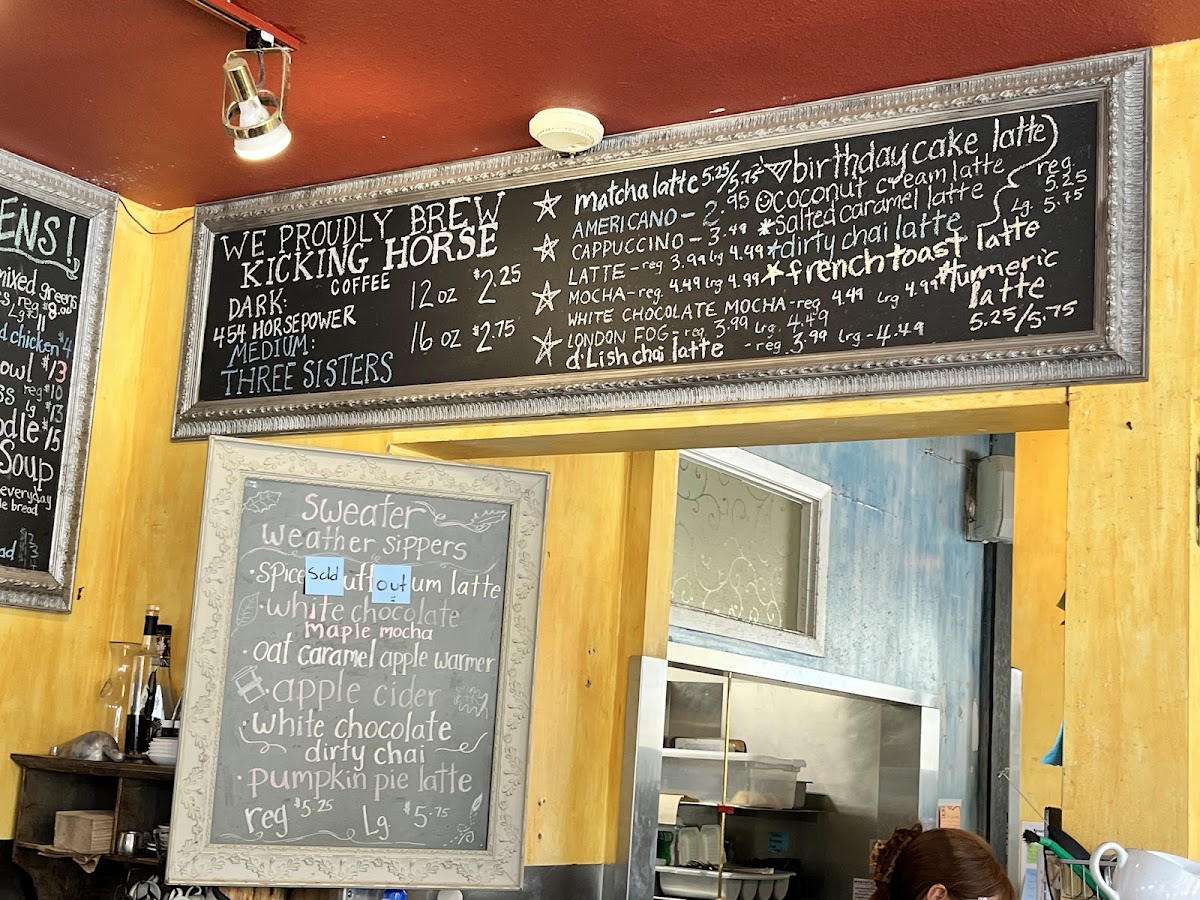 ENS!
mixed greens
reg $8.00
Lg 11
d chicken $4
owl $13
reg $10
ss lg $13
odle $15
Soup
everyday
le bread
ad
WE PROUDLY BREW
KICKING HORSE
COFFEE
DARK:
454 HORSEPOWER
MEDIUM:
THREE SISTERS
12 oz $2.25
16 oz $2.75
matcha latte 5.25/5.75
AMERICANO - 2.95
CAPPUCCINO - 3.49
LATTE - reg 3.99 lg 4.49
MOCHA - reg. 4.49 lrg 4.99
WHITE CHOCOLATE MOCHA - reg 4.49 lrg 4.99
LONDON FOG - reg 3.99 lrg. 4.49
d'Lish chai latte - reg. 3.99 lrg. - 4.49
birthday cake latte
coconut cream latte
*salted caramel latte
dirty chai latte
reg. 5.25
Lg. 5.75
french toast latte
turmeric
latte
5.25/5.75
Sweater
weather sippers
• spice sold uff out um latte
• white chocolate
maple mocha
• oat caramel apple warmer
• apple cider
• white chocolate
dirty chai
• pumpkin pie latte
reg $5.25 Lg $5.75